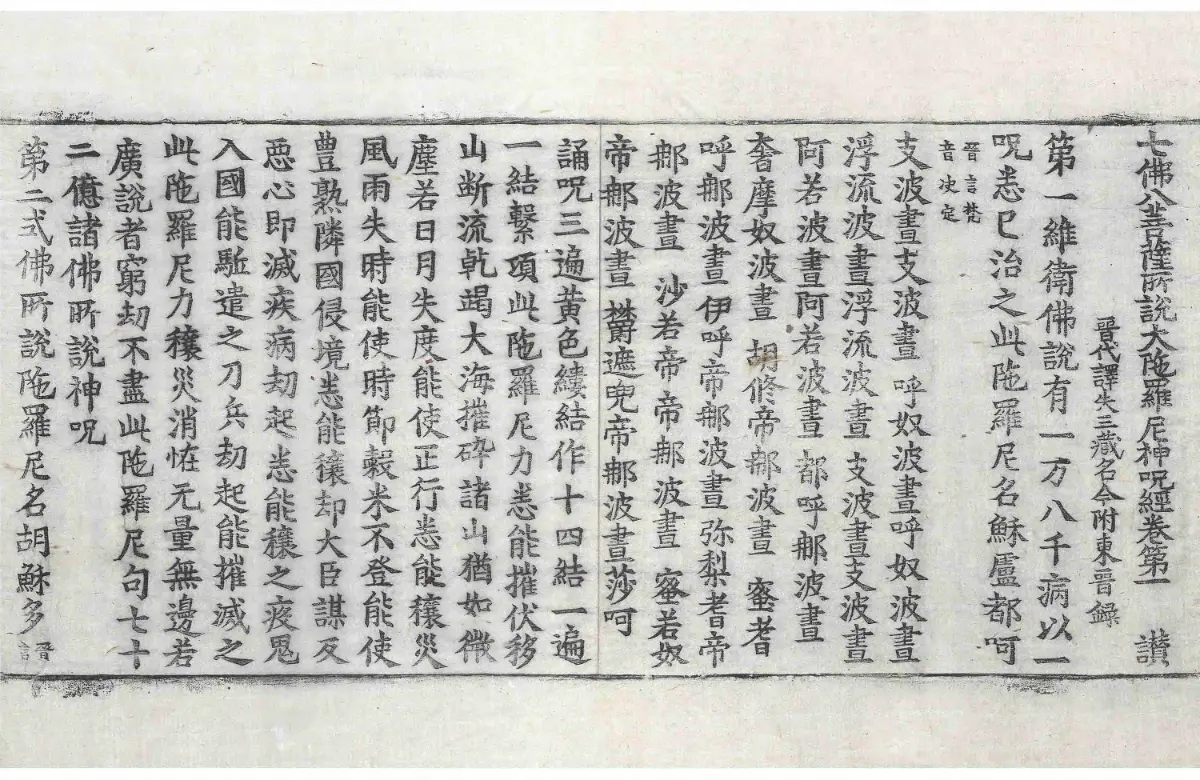 七佛八菩薩所說大陁羅尼神呪經卷第一 讃
晉代譯失三藏名今附東晉録
第一維衛佛說有一万八千病以一
呪悉已治之此陁羅尼名蘇盧都呵
晉言梵
音决定
支波晝支波晝 呼奴波晝呼奴波晝
浮流波晝浮流波晝 支波晝支波晝
阿若波晝阿若波晝 都呼𨚗波晝
奢摩奴波晝 胡修帝𨚗波晝 蜜耆
呼𨚗波晝伊呼帝𨚗波晝弥梨耆帝
𨚗波晝 沙若帝帝𨚗波晝 蜜若奴
帝𨚗波晝 欝遮兜帝𨚗波晝莎呵
誦呪三遍黄色縷結作十四結一遍
一結繫項此陁羅尼力悉能摧伏移
山断流乾竭大海摧碎諸山猶如微
塵若日月失度能使正行悉能穰災
風雨失時能使時節糓米不登能使
豊熟隣國侵境悉能穰却大臣謀反
惡心即滅疾病劫起悉能穰之疫鬼
入國能駈遣之刀兵劫起能摧滅之
此陁羅尼力穰災消恠无量無邊若
廣說者窮劫不盡此陁羅尼句七十
二億諸佛所說神呪
第二式佛所說陁羅尼名胡蘇多 晉言